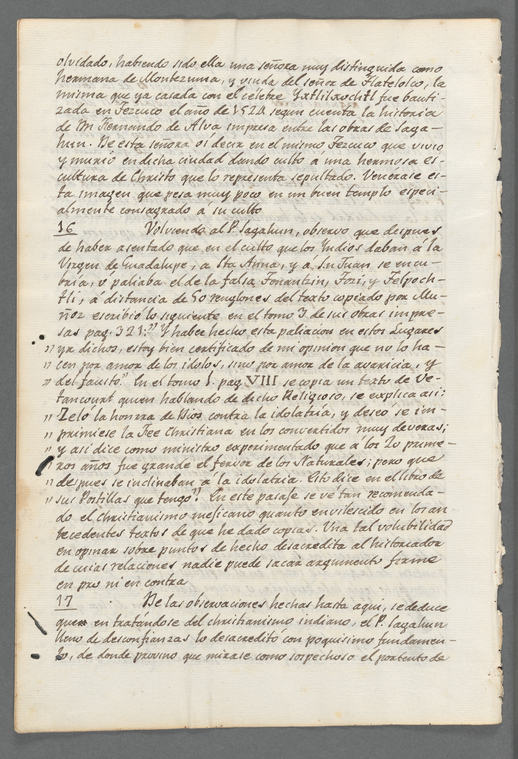 olvidado, habiendo sido ella una señora muy distinguida como
hermana de Montezuma, y viuda del señor de Tlatelolco, la
misma que ya casada con el celebre Yxtlilxochitl fue bauti-
zada en Tezcuco el año de 1524 segun cuenta la historia
de Dn Hernando de Alva impresa entre las obras de Saga-
hun. De esta señora oí decir en el mismo Tezcuco que vivio
y murió en dicha ciudad dando culto a una hermosa es-
cultura de Christo que lo representa sepultado. Venerase es-
ta imagen que pesa muy poco en un buen templo especi-
almente consagrado a su culto
16 Volviendo al P. Sagahun, observo que despues
de haber asentado que en el culto que los Yndios daban á la
Virgen de Guadalupe, a Sta Anna, y á Sn Juan se encu-
bria, ó paliaba el de la falsa Tonantzin, Tozi, y Telpoch-
tli, a distancia de 50 renglones del texto copiado por Mu-
ñoz escribió lo siguiente en el tomo 3 de sus obras impre-
sas pag. 321: " Y haber hecho esta paliacion en estos Lugares
" ya dichos, estoy bien certificado de mi opinion que no lo ha-
" cen por amor de los idolos, sino por amor de la avaricia, y
" del fausto." En el tomo 1. pag. VIII se copia un texto de Ve-
tancourt quien hablando de dicho Religioso, se explica asi:
" Zeló la honrra de Dios contra la idolatria, y deseó se im-
" primiese la Fee Christiana en los convertidos muy deveras;
" y asi dice como ministro experimentado que a los 20 prime-
ros años fue grande el fervor de los Naturales; pero que
" despues se inclineban á la idolatria. Esto dice en el libro de
" sus Postillas que tengo". En este pasaje se vé tan recomenda-
do el Christianismo mejicano quanto envilecido en los an
tecedentes textos de que he dado copias. Una tal volubilidad
en opinar sobre puntos de hecho desacredita al historiador
de cuias relaciones nadie puede sacar argumento firme
en pro ni en contra
17 De las observaciones hechas hasta aqui, se deduce
que en tratandose del christianismo indiano, el P. Sagahun
lleno de desconfianzas lo desacreditó con poquisimo fundamen-
to, de donde provino que mirase como sospechoso el portento de